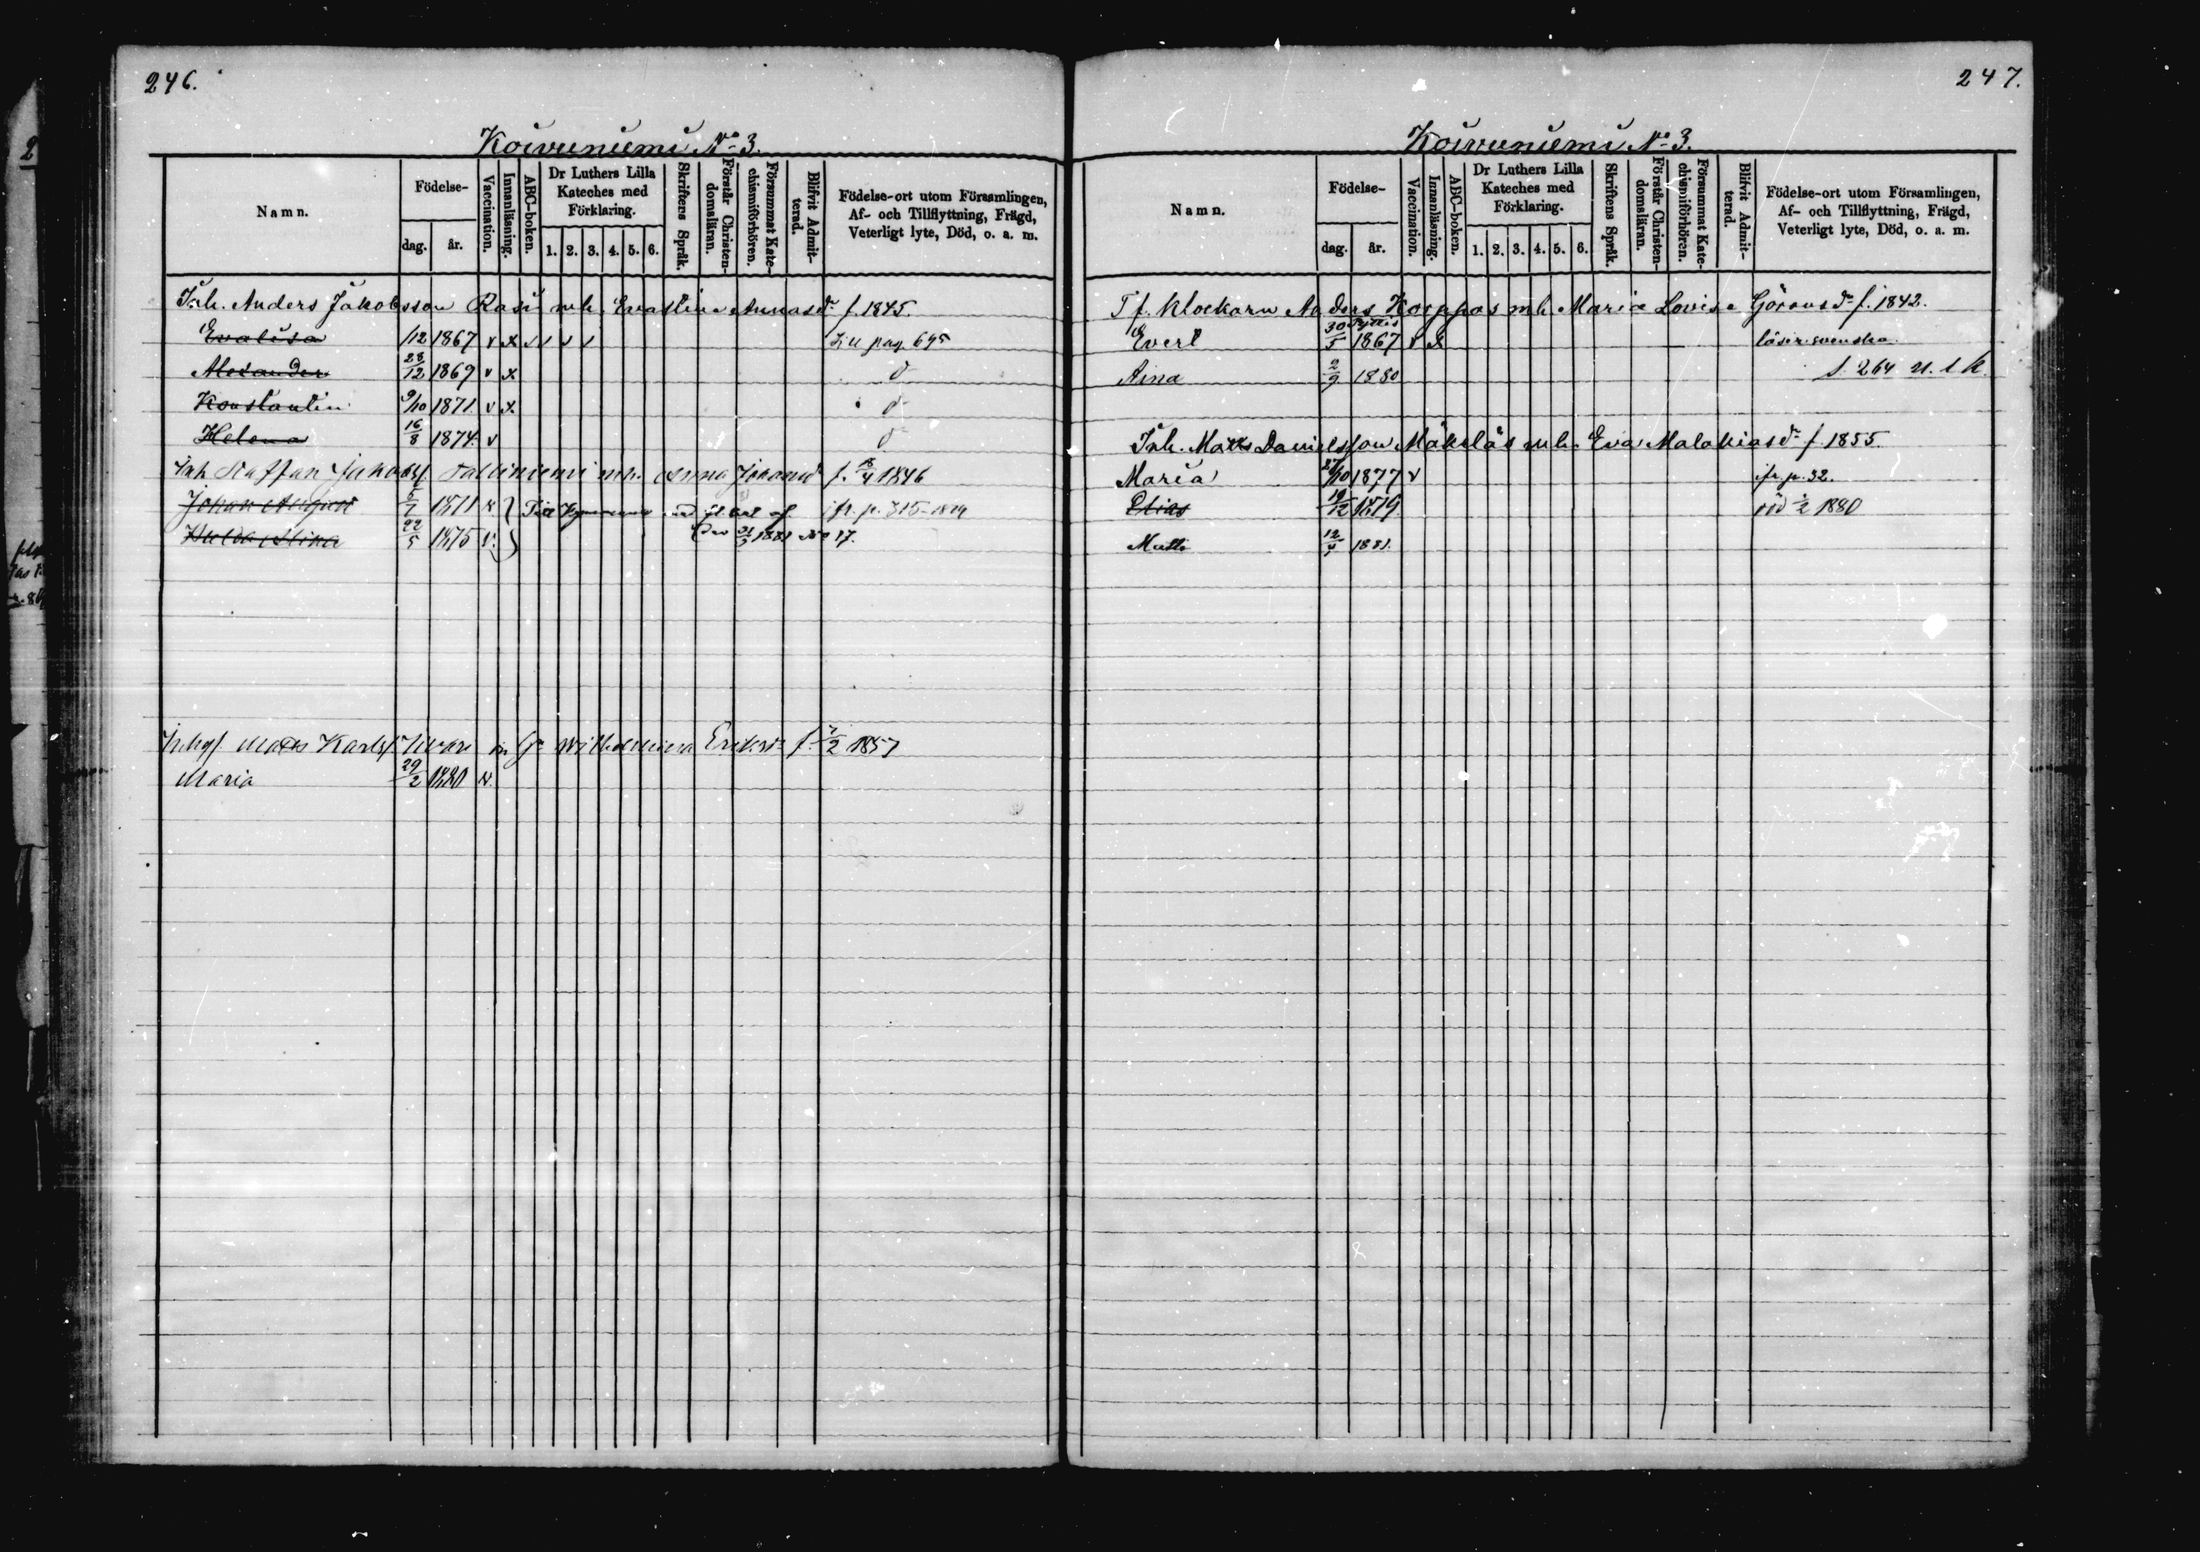 246.
Koivuniemi No 3.
Namn.
Födelse-
dag.
år.
Vaccination.
Innanläsning.
ABC-boken.
Dr Luthers Lilla
Kateches med
Förklaring.
1. 2. 3. 4. 5. 6.
Skriftens Språk.
Förstår Christen-
domsläran.
Försummat Kate-
chismiförhören.
Blifvit Admit-
terad.
Födelse-ort utom Församlingen,
Af- och Tillflyttning, Frägd,
Veterligt lyte, Död, o. a. m.
Inh. Anders Jakobsson Rasi mh. Evastina Annasdr f. 1845.
Evalisa /12 1867 v x ı ı v ı pag. 695
Alexander 28/12 1869 v x d
Konstantin 9/10 1871 v x d
Helena 16/8 1874 v d
Inh. Staffan Jakobsf mh. Anna Johansd f. /4 1846
Johan August 5/7 1871 v Till Kymmene fr. p. 315 1879
Hulda Stina 22/5 1875 v. den 21/3 1881 No 17.
Inhyf Matts Karlsf in Ga Wilhelmina Eriksdr f. 7/2 1857
Maria 29/2 1880 v.
247.
Koivuniemi No 3.
Namn.
Födelse-
dag.
år.
Vaccination.
Innanläsning.
ABC-boken.
Dr Luthers Lilla
Kateches med
Förklaring.
1. 2. 3. 4. 5. 6.
Skriftens Språk.
Förstår Christen-
domsläran.
Försummat Kate-
chismiförhören.
Blifvit Admit-
terad.
Födelse-ort utom Församlingen,
Af- och Tillflyttning, Frägd,
Veterligt lyte, Död, o. a. m.
T f. klockarn Anders Korppas mh. Maria Lovisa Göransdr f. 1842.
Evert 30/5 Pyttis 1867 v x läser svenska
Aina 2/9 1880 s. 264 n. l. k.
Inh. Matts Danielsson Mäkelä mh. Eva Malakiasdr f. 1855.
Maria 27/10 1877 v ifr. p. 32.
Elias 19/12 1879. död /2 1880
Matti 12/4 1881.